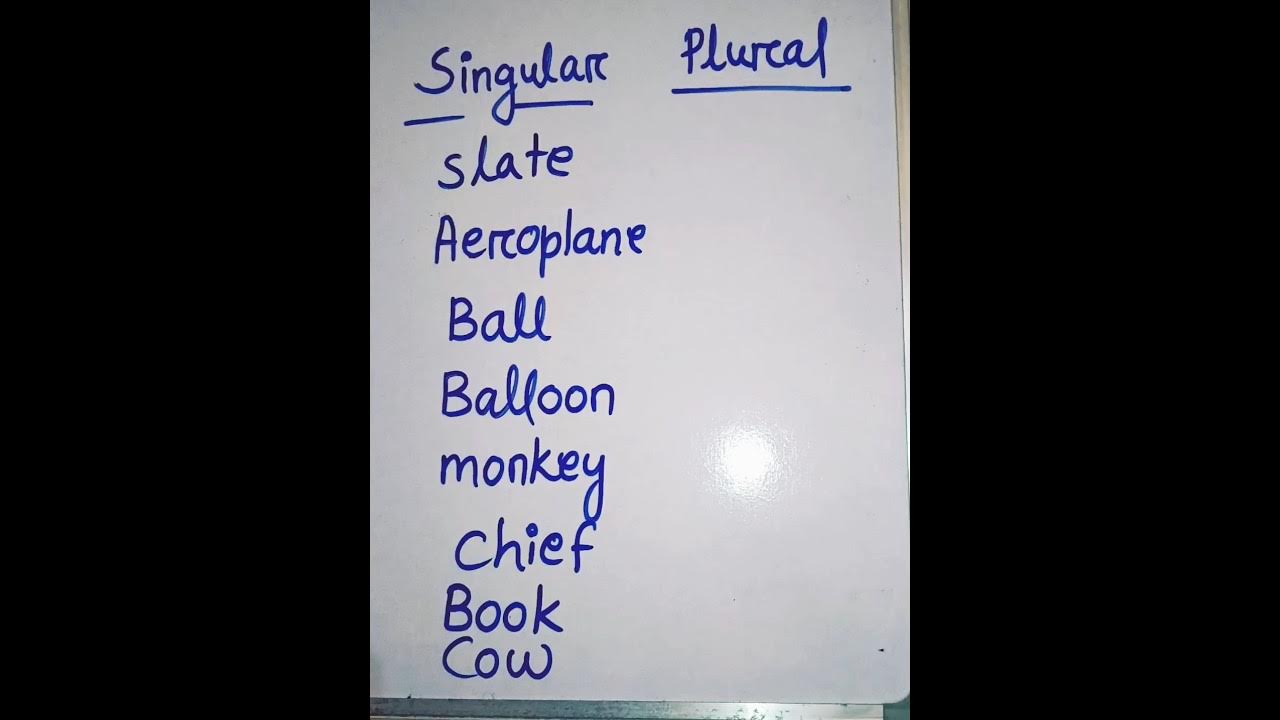 Singular Plural
slate
Aeroplane
Ball
Balloon
monkey
chief
Book
Cow